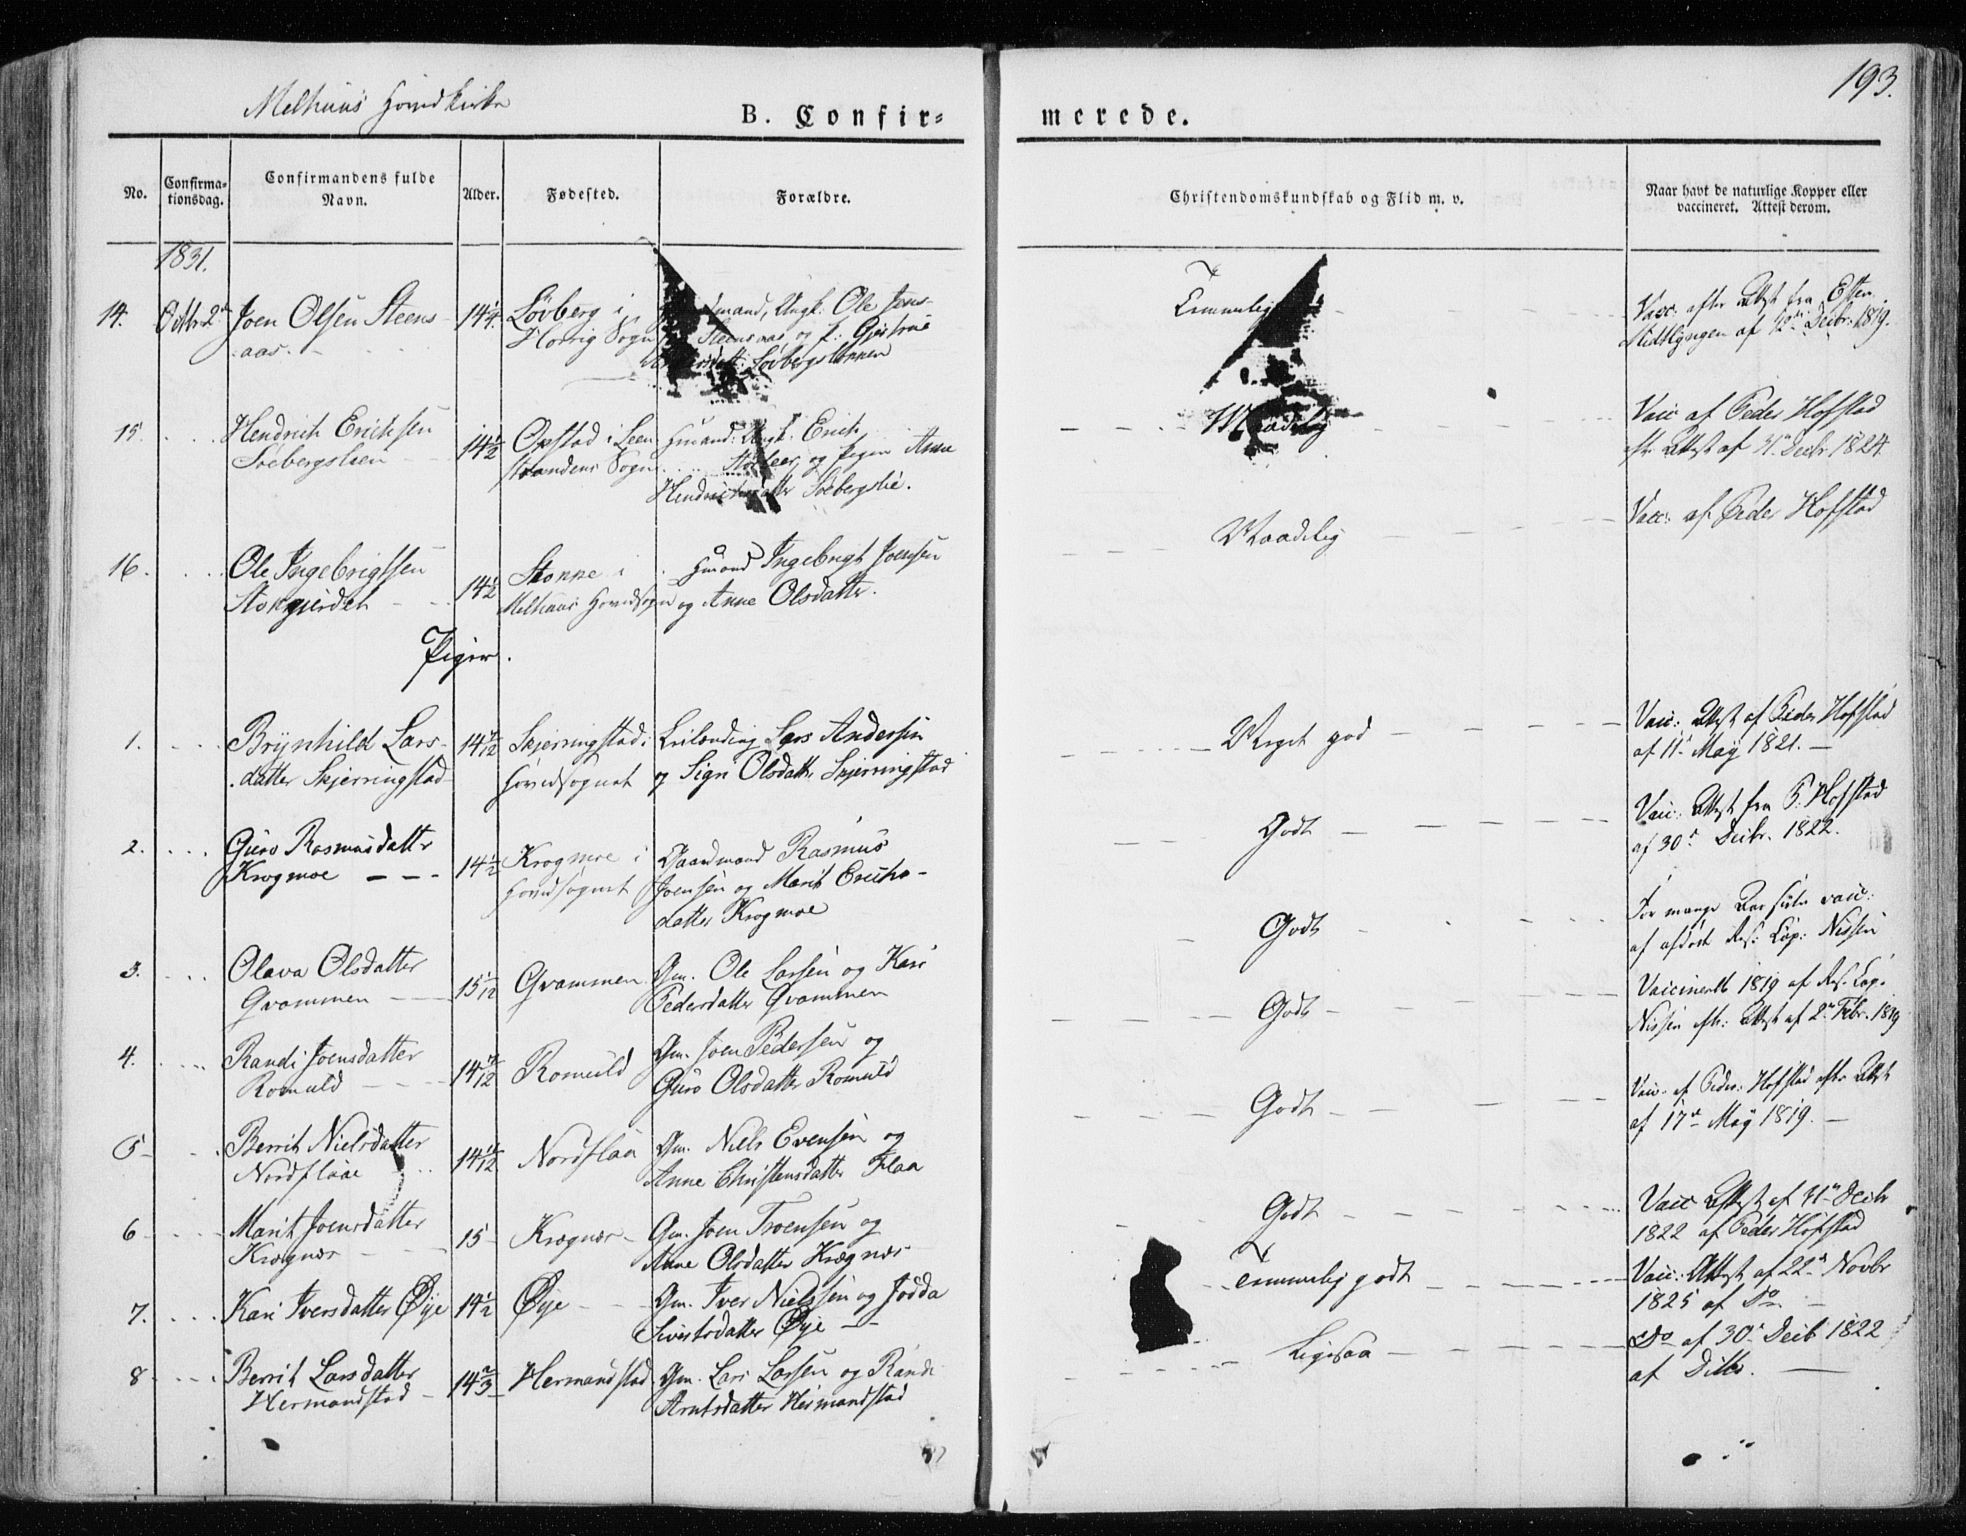 193.
Melhuus Hovedkirke
B. Confirmerede.
No.
Confirmationsdag.
Confirmandens fulde Navn.
Alder.
Fødested.
Forældre.
Christendomskundskab og Flid m. v.
Naar havt de naturlige Kopper eller vaccineret. Attest derom.
1831.
14. Octbr 2d Joen Olsen Steens
aas
14¼ Løvberg i
Horrig Sogn
mand, Ungk. Ole Jens-
Steensaas, og P. Gjertrue
Løvbergslønnen
Temmelig
Vacc. efter Attest fra Esten
Midtlyngen af Decbr: 1819.
15. Hendrich Erichsen
Søebergslien
14½ Opstad i Leen
strandens Sogn
Hmand: Ungk. Erich
og Pigen Anne
Hendrichsdatter Søebergslie.
Maadelig
Vacc af Peder Hofstad
eft. Attest af 31 Decbr 1824
16. Ole Ingebrigtsen
Stokgierdet
14½ Stokke i
Melhuus Hovedsogn
Hmand Ingebrigt Joensen
og Anne Olsdatter.
Maadelig
Vacc: af Peder Hofstad
Piger.
1. Brynhild Lars-
datter Skjerringstad
14 7/12 Skjerringstad i
Hovedsognet
Leilending Lars Andersen
og Sigri Olsdatter Skjerringstad
Meget god
Vacc: Attest af Peder Hofstad
af 11t May 1821.
2. Guro Rasmusdatter
Krogmoe
14½ Krogmoe i
Hovedsognet
Gaardmand Rasmus
Joensen og Marit Erichs-
datter Krogmoe
Godt
Vacc: Attest fra P. Hofstad
af 30t Decbr. 1822.
3. Olava Olsdatter
Gvammen
15 1/12 Gvammen
Gm. Ole Larsen og Kari
Pedersdatter Gvammen
Godt
For mange Aar siden vacc:
af afdøde Res: Cap: Nissen
4. Randi Joensdatter
Romuld
14 7/12 Romuld
Gm. Joen Pedersen og
Guro Olsdatter Romuld
Godt
Vaccineret 1819 af Res. Cap.
Nissen efter Attest af 2n Febr. 1819
5 Berrit Nielsdatter
Nordflaae
14 11/12 Nordflaa
Gm. Niels Evensen og
Anne Christensdatter Flaa
Godt
Vacc. af Peder: Hofstad efter Attst
af 17de May 1819.
6 Marit Joensdatter
Krognæs
15 Krognæs
Gm. Joen Troensen og
Anne Olsdatter Krognæs
Godt
Vacc Attest af 31te Decbr
1822 af Peder Hofstad
7. Kari Iversdatter Øye
14½ Øye
Gm. Iver Nielssen og Jødda
Sivertsdatter Øye
Temmelig godt
Vacc: Attest af 22de Novbr
1825 af Do
8 Berrit Larsdatter
Hermandstad
14⅔ Hermandstad
Gm. Lars Larsen og Randi
Arntsdatter Hermandstad
Ligesaa
Do af 30t Decb 1822
af Ditto.